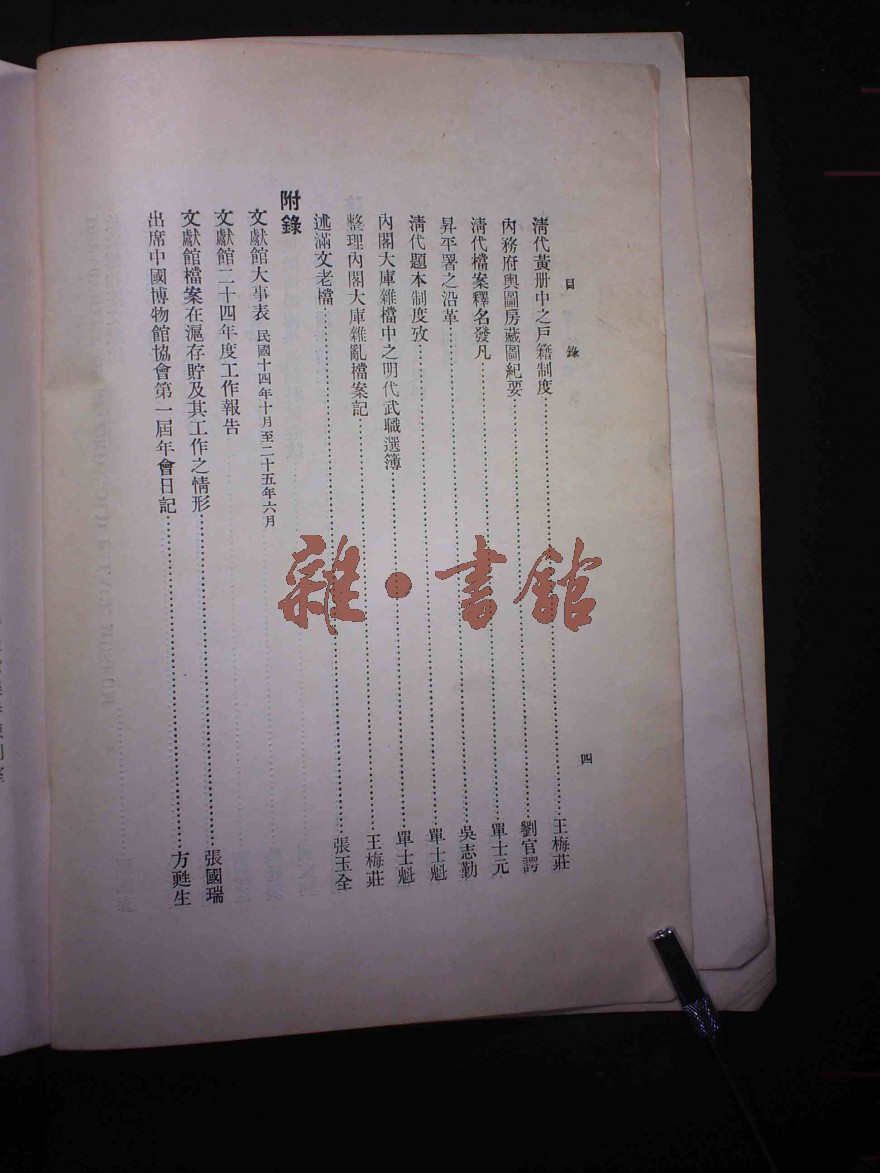 目錄
四
清代黃册中之戶籍制度…………王梅莊
內務府輿圖房藏圖紀要…………劉官諤
清代檔案釋名發凡…………單士元
昇平署之沿革…………吳志勤
清代題本制度攷…………單士魁
內閣大庫雜檔中之明代武職選簿…………單士魁
整理內閣大庫雜亂檔案記…………王梅莊
述滿文老檔…………張玉全
附錄
文獻館大事表 民國十四年十月至二十五年六月
文獻館二十四年度工作報告
文獻館檔案在滬存貯及其工作之情形…………張國瑞
出席中國博物館協會第一屆年會日記…………方甦生
雜·書館